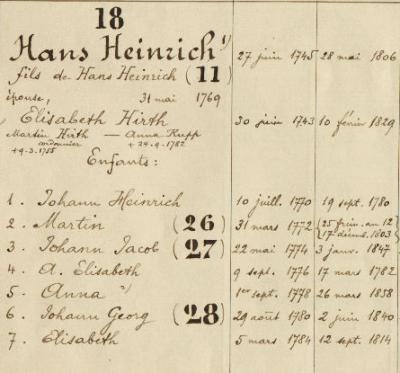 18
Hans Heinrich 1) 27 juin 1745 28 mai 1806
fils de Hans Heinrich (11)
épouse, 31 mai 1769
Elisabeth Hirth 30 juin 1743 10 févr. 1829
Martin Hirth — Anna Rupp
cordonnier + 24.9.1782
+ 9.3.1755
Enfants:
1. Johann Heinrich 10 juill. 1770 19 sept. 1780
2. Martin (26) 31 mars 1772 {25 frim. an 12} {17 décemb. 1803}
3. Johann Jacob (27) 22 mai 1774 3 janv. 1847
4. A. Elisabeth 9 sept. 1776 17 mars 1782
5. Anna 2) 1er sept. 1778 26 mars 1858
6. Johann Georg (28) 29 août 1780 2 juin 1840
7. Elisabeth 5 mars 1784 12 sept. 1814